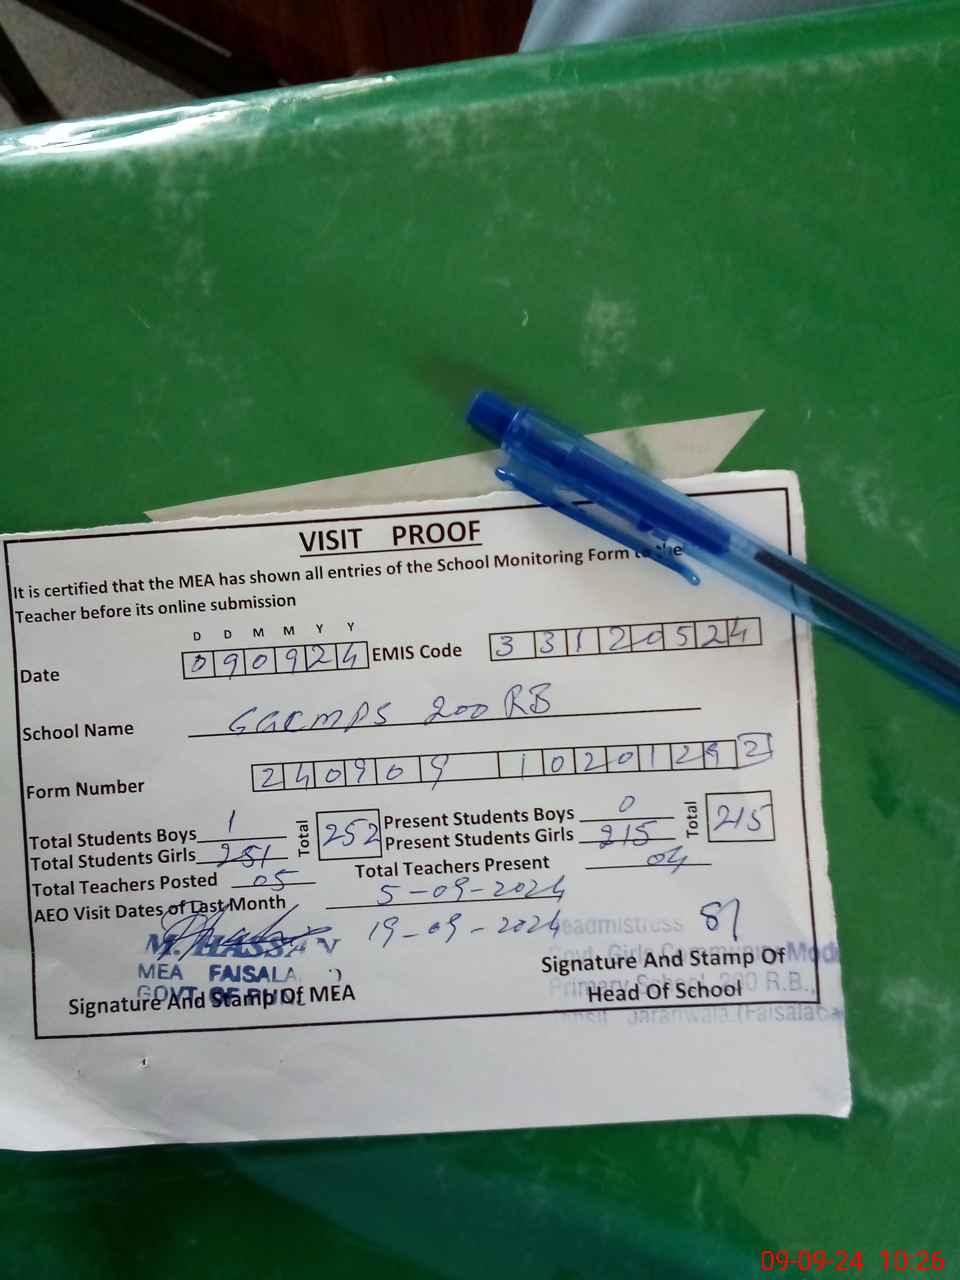 VISIT PROOF
It is certified that the MEA has shown all entries of the School Monitoring Form to the
Teacher before its online submission
D D M M Y Y
Date 090924 EMIS Code 33120524
School Name GGCMPS 200 RB
Form Number 240909 1020122
Total Students Boys 1 Total 252 Present Students Boys 0 Total 215
Total Students Girls 251 Present Students Girls 215
Total Teachers Posted 05 Total Teachers Present 04
AEO Visit Dates of Last Month 5-09-2024
19-09-2024
M. HASSAN
MEA FAISALA
GOVT OF PUN
Signature And Stamp Of MEA
eadmistress
Govt. Girls Community Mod
Primary School, 200 R.B.,
Jaranwala (Faisalaba
Signature And Stamp Of
Head Of School
09-09-24 10:26